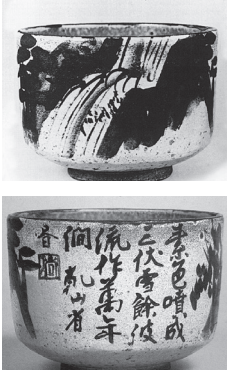 素色噴成
三伏雪餘波
流作萬年
澗 乾山省
書